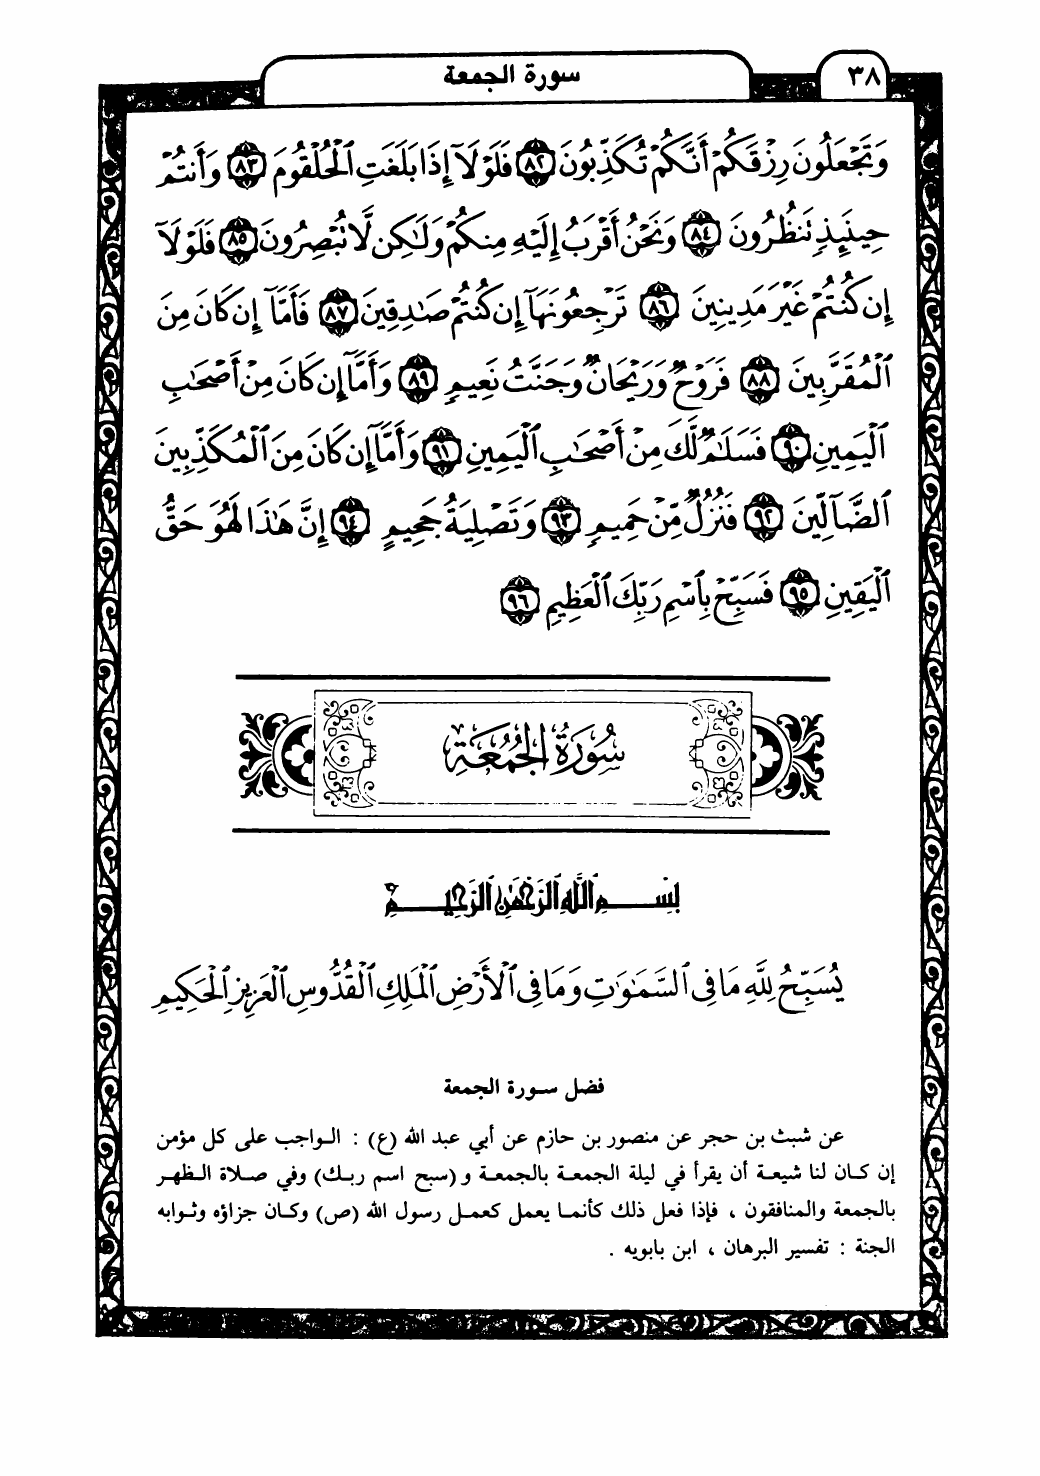 ٣٨
سورة الجمعة
وَتَجْعَلُونَ رِزْقَكُمْ أَنَّكُمْ تُكَذِّبُونَ ٨٢ فَلَوْلَآ إِذَا بَلَغَتِ ٱلْحُلْقُومَ ٨٣ وَأَنتُمْ
حِينَئِذٍ تَنظُرُونَ ٨٤ وَنَحْنُ أَقْرَبُ إِلَيْهِ مِنكُمْ وَلَٰكِن لَّا تُبْصِرُونَ ٨٥ فَلَوْلَآ
إِن كُنتُمْ غَيْرَ مَدِينِينَ ٨٦ تَرْجِعُونَهَآ إِن كُنتُمْ صَٰدِقِينَ ٨٧ فَأَمَّآ إِن كَانَ مِنَ
ٱلْمُقَرَّبِينَ ٨٨ فَرَوْحٌ وَرَيْحَانٌ وَجَنَّتُ نَعِيمٍ ٨٩ وَأَمَّآ إِن كَانَ مِنْ أَصْحَٰبِ
ٱلْيَمِينِ ٩٠ فَسَلَٰمٌ لَّكَ مِنْ أَصْحَٰبِ ٱلْيَمِينِ ٩١ وَأَمَّآ إِن كَانَ مِنَ ٱلْمُكَذِّبِينَ
ٱلضَّآلِّينَ ٩٢ فَنُزُلٌ مِّنْ حَمِيمٍ ٩٣ وَتَصْلِيَةُ جَحِيمٍ ٩٤ إِنَّ هَٰذَا لَهُوَ حَقُّ
ٱلْيَقِينِ ٩٥ فَسَبِّحْ بِٱسْمِ رَبِّكَ ٱلْعَظِيمِ ٩٦
سُورَةُ الجُمُعَةِ
بِسْمِ ٱللَّهِ ٱلرَّحْمَٰنِ ٱلرَّحِيمِ
يُسَبِّحُ لِلَّهِ مَا فِى ٱلسَّمَٰوَٰتِ وَمَا فِى ٱلْأَرْضِ ٱلْمَلِكِ ٱلْقُدُّوسِ ٱلْعَزِيزِ ٱلْحَكِيمِ
فضل سورة الجمعة
عن شبث بن حجر عن منصور بن حازم عن أبي عبد الله (ع) : الواجب على كل مؤمن
إن كان لنا شيعة أن يقرأ في ليلة الجمعة بالجمعة و (سبح اسم ربك) وفي صلاة الظهر
بالجمعة والمنافقون ، فإذا فعل ذلك كأنما يعمل كعمل رسول الله (ص) وكان جزاؤه وثوابه
الجنة : تفسير البرهان ، ابن بابويه .